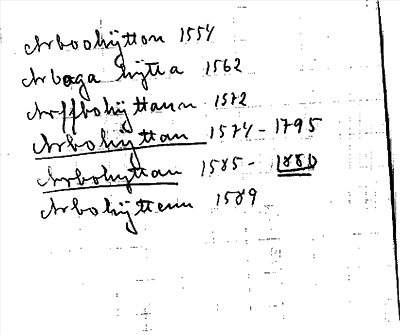 Arboohÿtton 1554
Arboga hÿtta 1562
Arffbohÿttann 1572
Arbohÿttan 1574-1795
Arbohÿttan 1585- 1880
Arbohÿttenn 1589